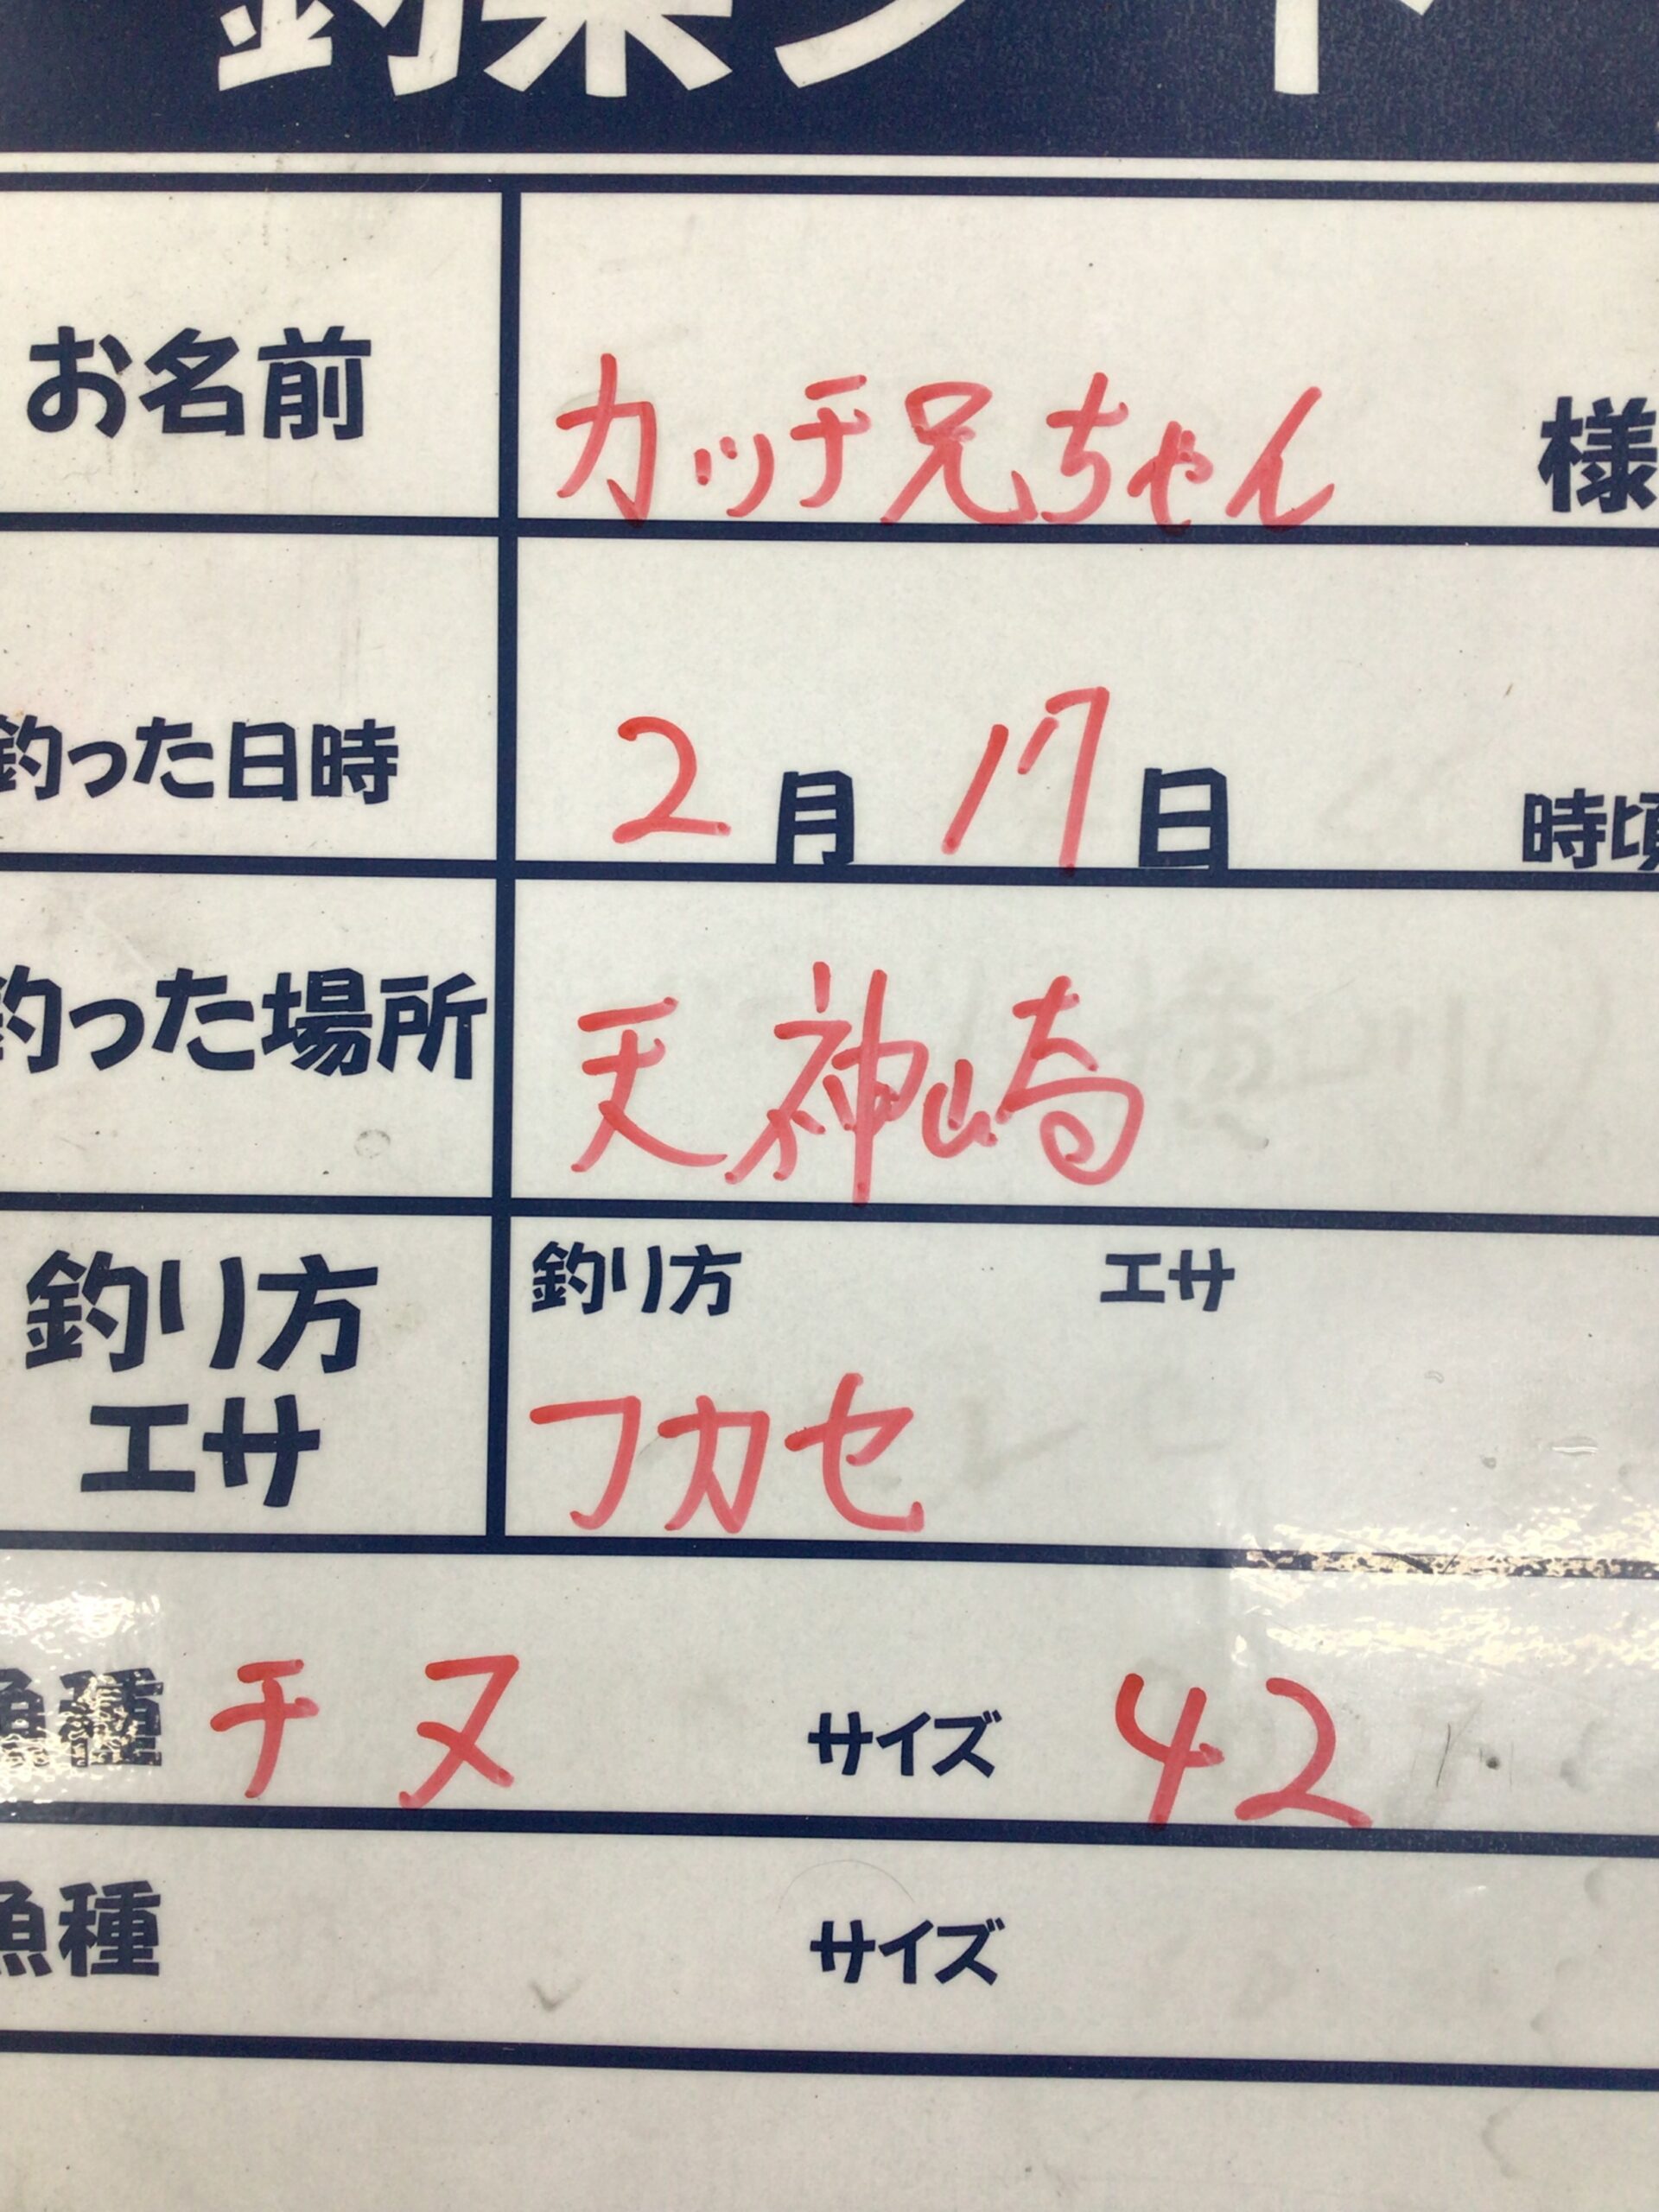 釣果シート
お名前 カッチ兄ちゃん 様
釣った日時 2月17日 時頃
釣った場所 天神崎
釣り方 エサ
釣り方
エサ
フカセ
魚種 チヌ サイズ 42
魚種 サイズ